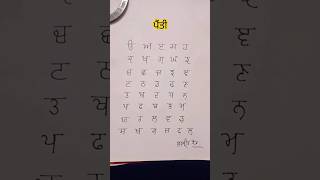 ਪੈਂਤੀ
ੳ ਅ ੲ ਸ ਹ
ਕ ਖ ਗ ਘ ਙ
ਚ ਛ ਜ ਝ ਞ
ਟ ਠ ਡ ਢ ਣ
ਤ ਥ ਦ ਧ ਨ
ਪ ਫ ਬ ਭ ਮ
ਯ ਰ ਲ ਵ ੜ
ਸ਼ ਖ਼ ਗ਼ ਜ਼ ਫ਼ ਲ਼